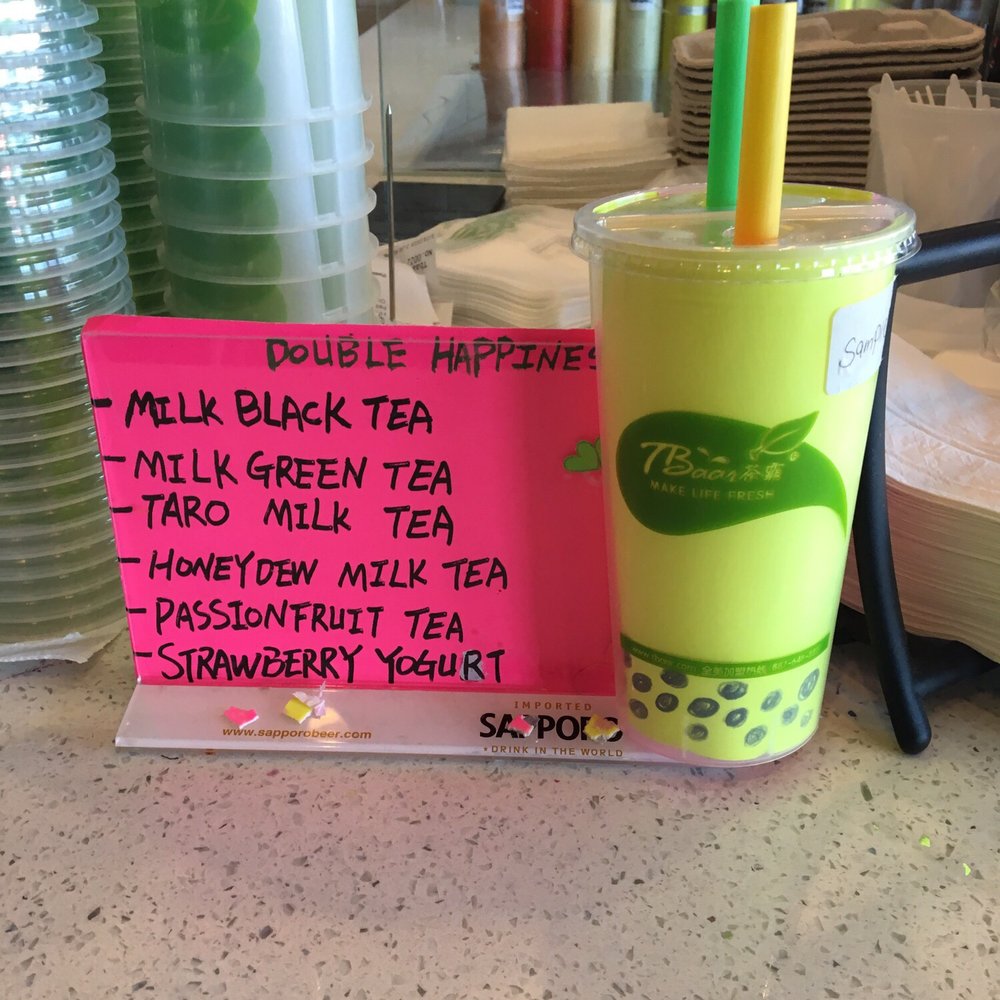 DOUBLE HAPPINES
- MILK BLACK TEA
- MILK GREEN TEA
- TARO MILK TEA
- HONEYDEW MILK TEA
- PASSIONFRUIT TEA
- STRAWBERRY YOGURT
IMPORTED
SAPPORO
www.sapporobeer.com
★DRINK IN THE WORLD
Samp
TBaar 茶霸®
MAKE LIFE FRESH